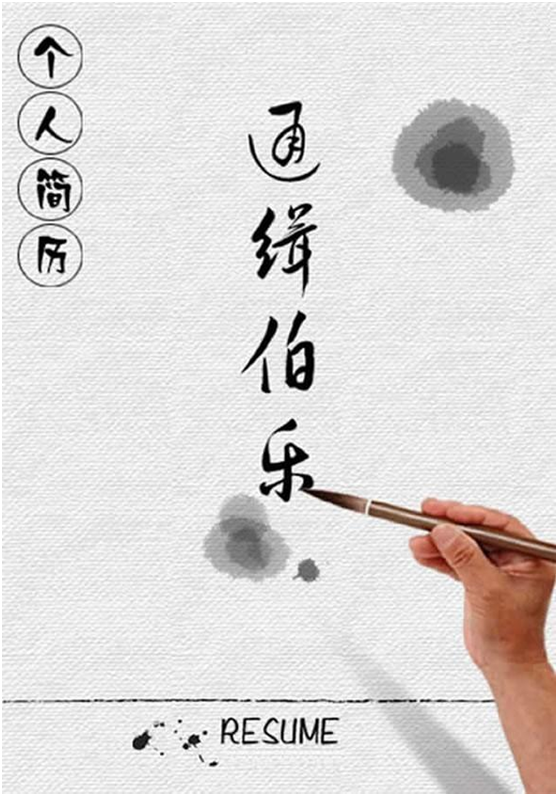 个人简历
通缉伯乐
RESUME